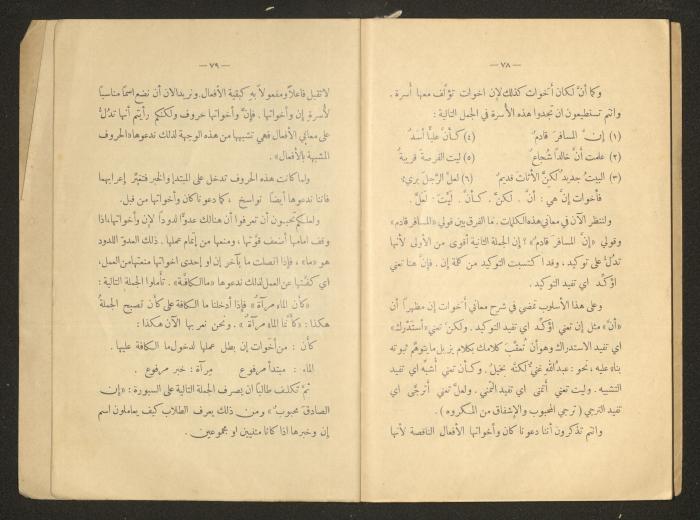 — ٧٨ —
وكما أنَّ لكان أخوات كذلك لإن اخوات تؤلّف معها أُسرة.
وانتم تستطيعون ان تجدوا هذه الأُسرة في الجمل التالية:
(١) إنَّ المسافرَ قادمٌ (٤) كأنَّ عليًّا أسَدٌ
(٢) علمت أنَّ خالدًا شُجاعٌ (٥) ليت الفرصةَ قريبةٌ
(٣) البيتُ جديد لكنَّ الأثاث قديمٌ (٦) لعلَّ الرَّجلَ بريءٌ
فأخوات إنَّ هي: أنَّ. لكنَّ. كأنَّ. لَيْتَ. لَعلَّ.
ولننظر الآن في معاني هذه الكلمات. ما الفرق بين قولي «المسافر قادم»
وقولي «إنَّ المسافرَ قادمٌ»؟ إن الجملة الثانية أقوى من الأولى لأنها
تدلُّ على توكيد، وقد اكتسبت التوكيد من كلمة إن. فإنَّ هنا تعني
أؤكّد اي تفيد التوكيد.
وعلى هذا الأسلوب تمضي في شرح معاني أخوات إن مظهرًا أن
«أنَّ» مثل إن تعني أؤكّد اي تفيد التوكيد. ولكنَّ تعني «أستدرك»
اي تفيد الاستدراك وهو أن تُعقّبَ كلامك بكلام يزيل ما يتوهّم ثبوته
بناء عليه، نحو: عبدالله غنيٌّ لكنّه بخيلٌ. وكأن تعني أُشبّه اي تفيد
التشبيه. وليت تعني أتمنّى اي تفيد التمنّي. ولعلَّ تعني أترجَّى اي
تفيد الترجي (ترجي المحبوب والإشفاق من المكروه).
وانتم تذكرون أننا دعونا كان وأخواتها الأفعال الناقصة لأنها
— ٧٩ —
لا تقبل فاعلًا ومفعولًا به كبقية الأفعال. ونريد الان أن نضع اسمًا مناسبًا
لأسرة إن وأخواتها. فإنَّ وأخواتها حروف ولكنكم رأيتم أنها تدلُّ
على معاني الأفعال فهي تشبهها من هذه الوجهة لذلك ندعوها «الحروف
المشبهة بالأفعال».
ولما كانت هذه الحروف تدخل على المبتدإ والخبر فتغيّر إعرابهما
فاننا ندعوها أيضًا نواسخ، كما دعونا كان وأخواتها من قبل.
ولعلكم تحبون أن تعرفوا أن هنالك عدوًّا لدودًا لإن وأخواتها، اذا
وقف امامها أضعف قوّتها، ومنعها من إتمام عملها. ذلك العدوّ اللدود
هو «ما»، فإذا اتصلت ما بآخر إن او إحدى اخواتها منعتها من العمل،
اي كفّتها عن العمل لذلك ندعوها «ما الكافّة». تأملوا الجملة التالية:
«كأن الماءَ مرآةٌ» فإذا أدخلنا ما الكافة على كأن تصبح الجملةُ
هكذا: «كأنّما الماءُ مرآةٌ». ونحن نعربها الآن هكذا:
كأن: من أخوات إن بطل عملها لدخول ما الكافة عليها.
الماء: مبتدأ مرفوع مرآة: خبر مرفوع.
ثمّ تكلّف طالبًا ان يصرف الجملة التالية على السبورة: «إن
الصادقَ محبوبٌ» ومن ذلك يعرف الطلاب كيف يعاملون اسم
إن وخبرها اذا كانا مثنيين او مجموعين.